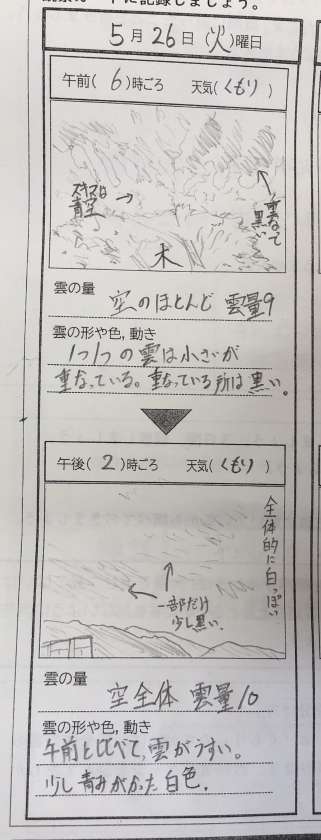 5月26日(火)曜日
午前(6)時ごろ 天気(くもり)
スキマは
青空
重なって
黒い
木
雲の量
空のほとんど 雲量9
雲の形や色,動き
1つ1つの雲は小さいが
重なっている。重なっている所は黒い。
午後(2)時ごろ 天気(くもり)
全体的に白っぽい
一部だけ
少し黒い。
雲の量
空全体 雲量10
雲の形や色,動き
午前と比べて,雲がうすい。
少し青みがかった白色。